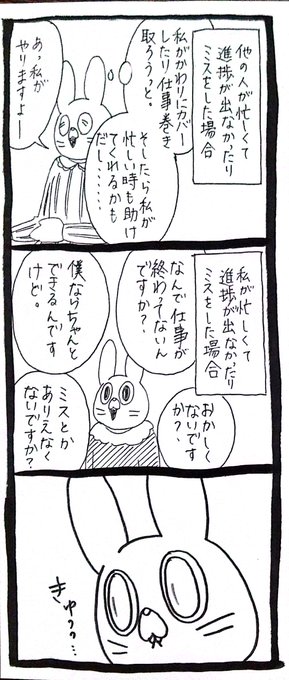 他の人が忙しくて
進捗が出なかったり
ミスをした場合
私がかわりにカバー
したり仕事巻き
取ろうっと。
そしたら私が
忙しい時も助け
てくれるかも
だし……
あっ私が
やりますよー
私が忙しくて
進捗が出なかったり
ミスをした場合
なんで仕事が
終わってないん
ですか?
僕ならちゃんと
できるんです
けど。
おかしく
ないです
か?、
ミスとか
ありえなく
ないですか?
きゅぅぅ…